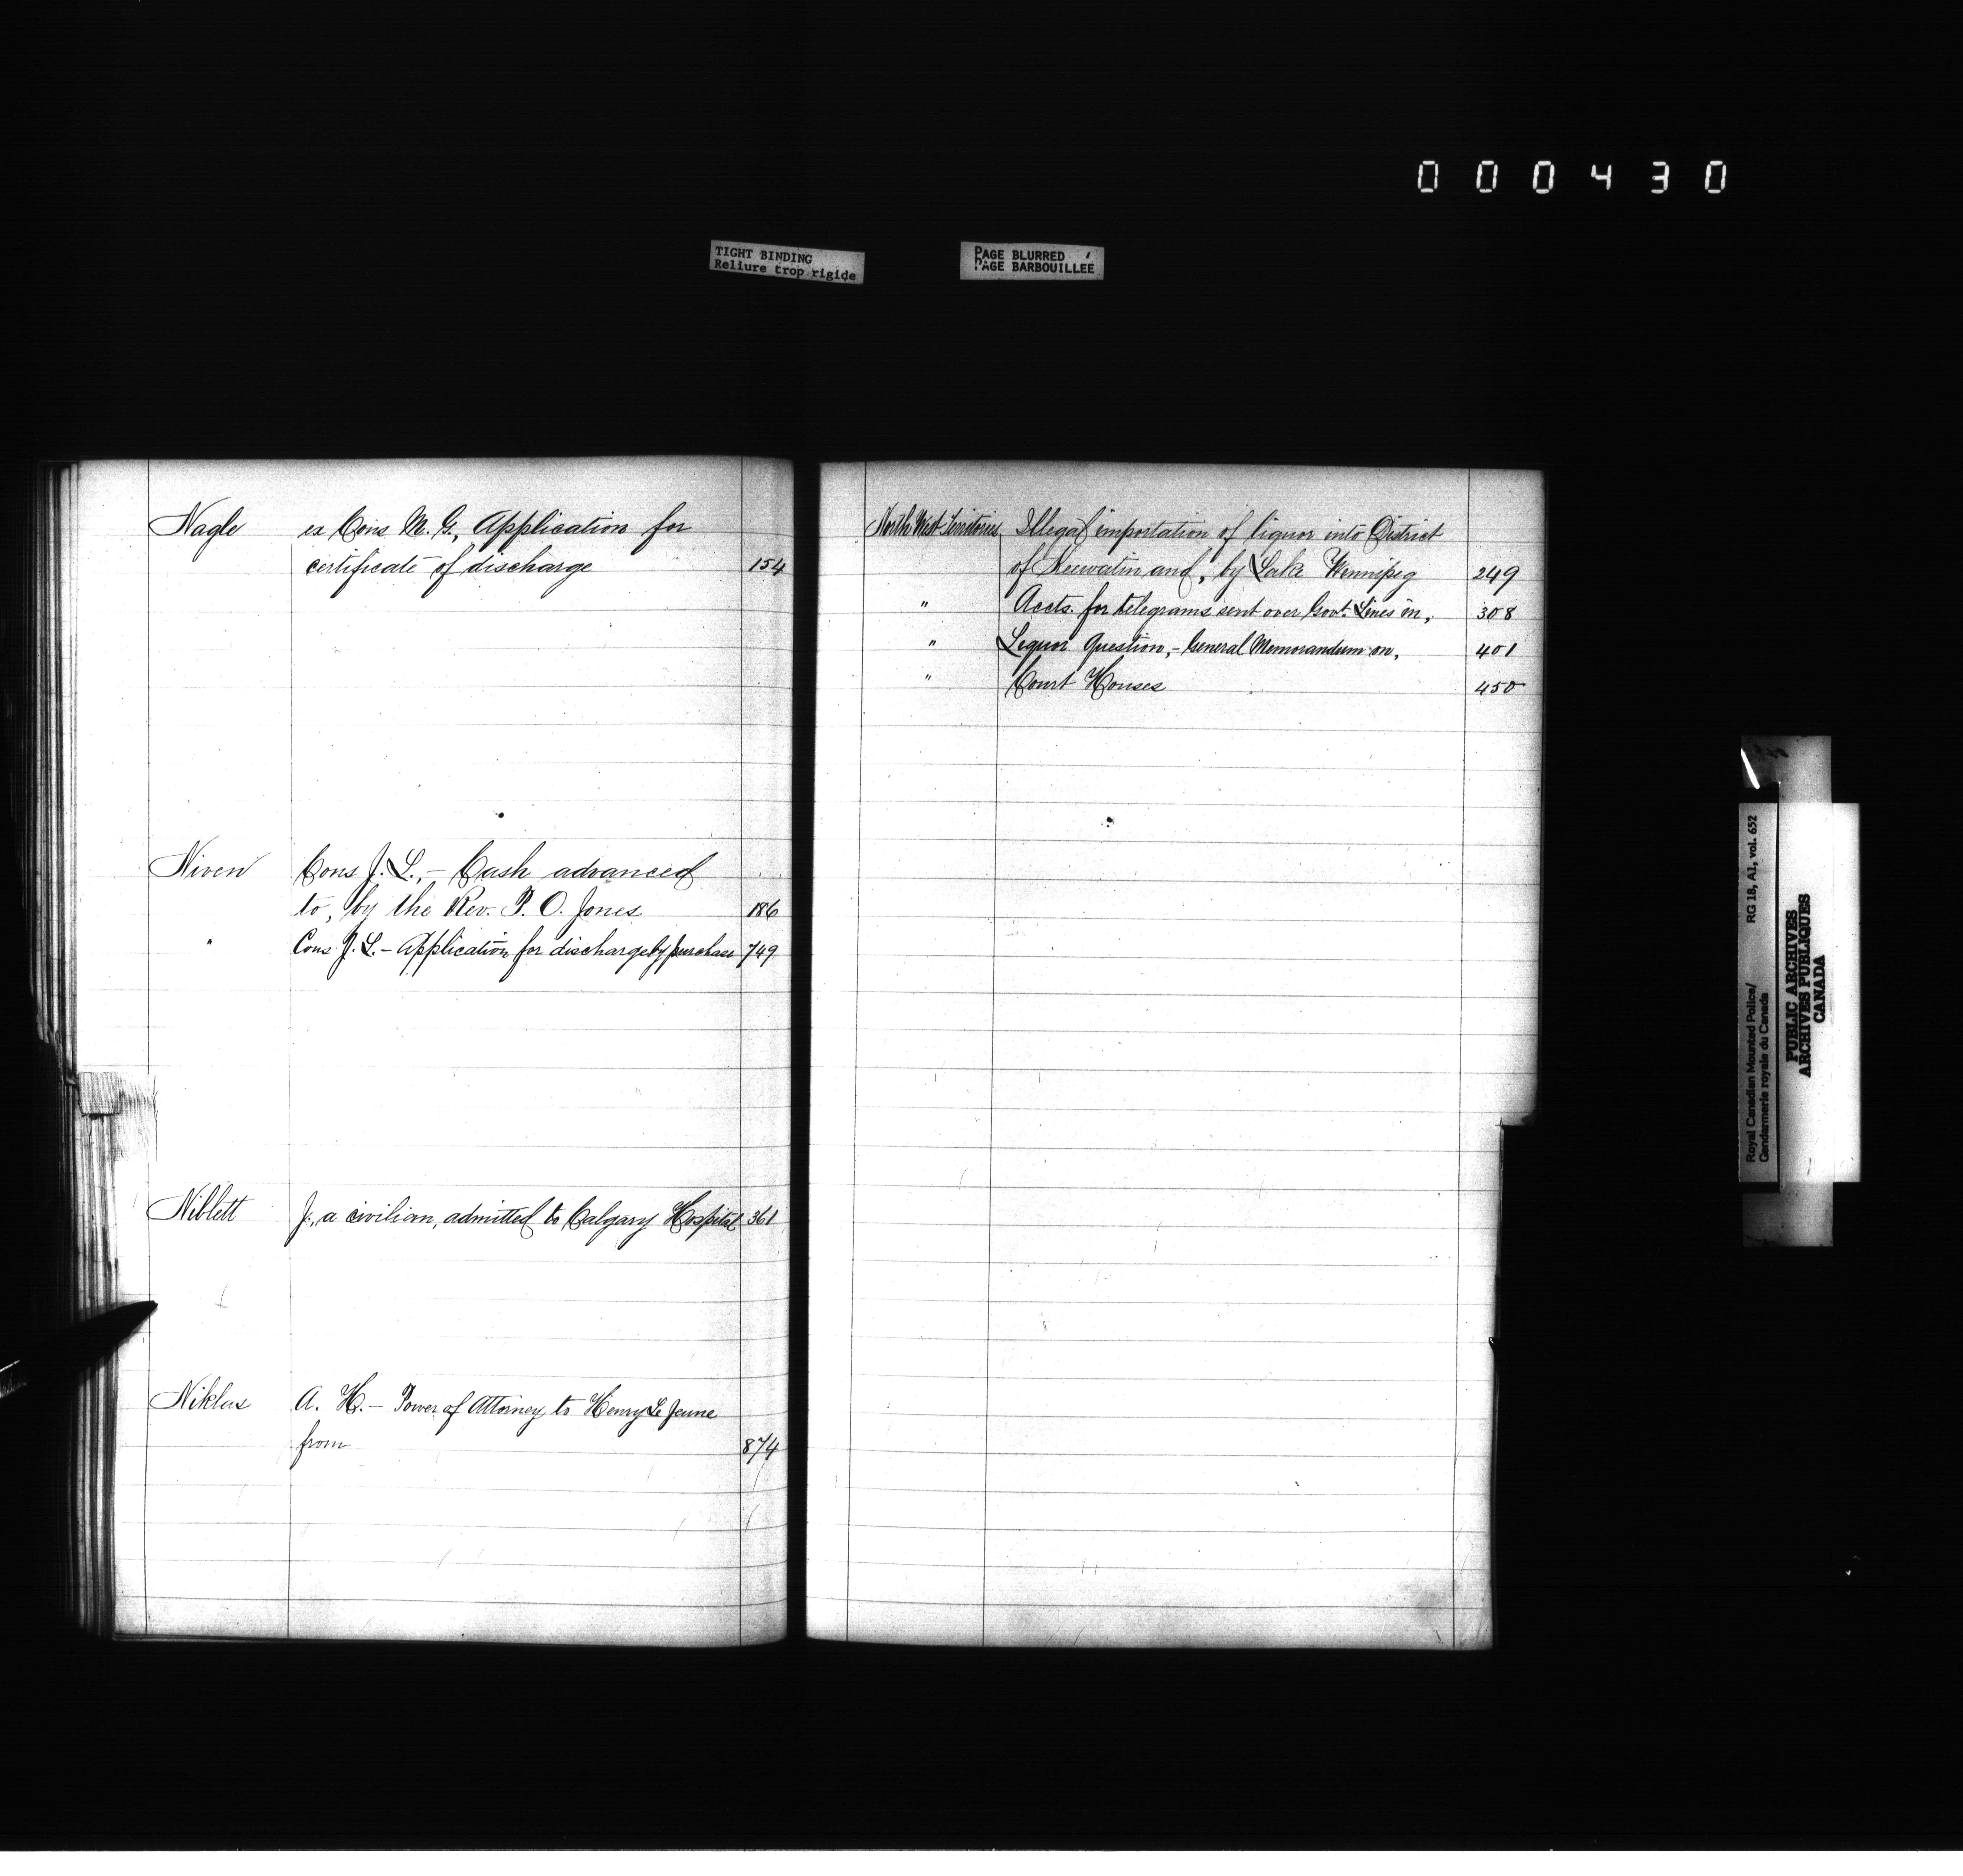 000430
TIGHT BINDING
Reliure trop rigide
PAGE BLURRED
PAGE BARBOUILLEE
Nagle ex Cons M. G., Application for
certificate of discharge 154
Niven Cons J. L., - Cash advanced
to, by the Rev. P. O. Jones 186
" Cons J. L. - Application for discharge by purchase 749
Niblett J., a civilian, admitted to Calgary Hospital 361
Niklas A. H. - Power of Attorney to Henry Le Jeune
from 874
North West Territories Illegal importation of liquor into District
of Keewatin and, by Lake Winnipeg 249
" Accts. for telegrams sent over Govt. Lines in, 308
" Liquor Question, - General Memorandum on, 401
" Court Houses 450
Royal Canadian Mounted Police/ RG 18, A1, vol. 652
Gendarmerie royale du Canada
PUBLIC ARCHIVES
ARCHIVES PUBLIQUES
CANADA